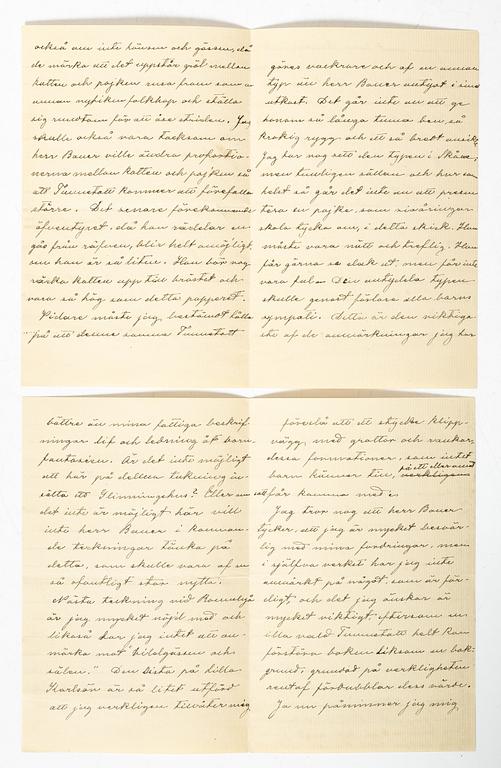 också om inte hönsen och gässen, då
de märka att det uppstår gräl mellan
katten och pojken rusa fram som en
annan nyfiken folkhop och ställa
sig rundtom för att åse striden. Jag
skulle också vara tacksam om
herr Bauer ville ändra proportio-
nerna mellan katten och pojken så
att Tummetott kommer att förefalla
större. Det senare förekommande
äfventyret, då han räddar en
gås från räfven, blir helt omöjligt,
om han är så liten. Han bör nog
räcka katten upp till bröstet och
vara så hög som detta papperet.
Vidare måste jag bestämdt hålla
på att denne samma Tummetott
göres vackrare och af en annan
typ än herr Bauer antydt i sina
utkast. Det går inte an att ge
honom så långa tunna ben så
krokig rygg och ett så bredt ansikte
Jag har nog sett den typen i Skåne,
men tämligen sällan och hur som
helst så går det inte an att presen
tera en pojke, som nioåringar
skola tycka om, i detta skick. Han
måste vara nätt och treflig. Han
får gärna se elak ut, men får inte
vara ful. Den antydda typen
skulle genast förlora alla barns
sympati. Detta är den viktiga
ste af de anmärkningar jag har
bättre än mina fattiga beskrif-
ningar lif och ledning åt barn-
fantasien. Är det inte möjligt
att här på denna teckning in-
sätta ett Glimmingehus? Eller om
det inte är möjligt här vill
inte herr Bauer i komman-
de teckningar tänka på
detta, som skulle vara af en
så ofantligt stor nytta.
Nästa teckning vid Ronneby å
är jag mycket nöjd med och
likaså har jag intet att an-
märka mot vildgässen och
sälen." Den sista på lilla
Karlsön är så litet utförd
att jag verkligen tillåter mig
föreslå att ett stycke klipp-
vägg med grottor och raukar,
dessa formationer, som intet
barn känner till, på ett eller annat
sätt får komma med.
Jag tror nog att herr Bauer
tycker, att jag är mycket besvär-
lig med mina fordringar, men
i själfva verket har jag inte
anmärkt på något, som är fär-
digt, och det jag önskar är
mycket viktigt eftersom en
illa vald Tummetott helt kan
förstöra boken liksom en bak-
grund, grundad på verkligheten
rent af förbubblar dess värde.
Ja nu påminner jag mig